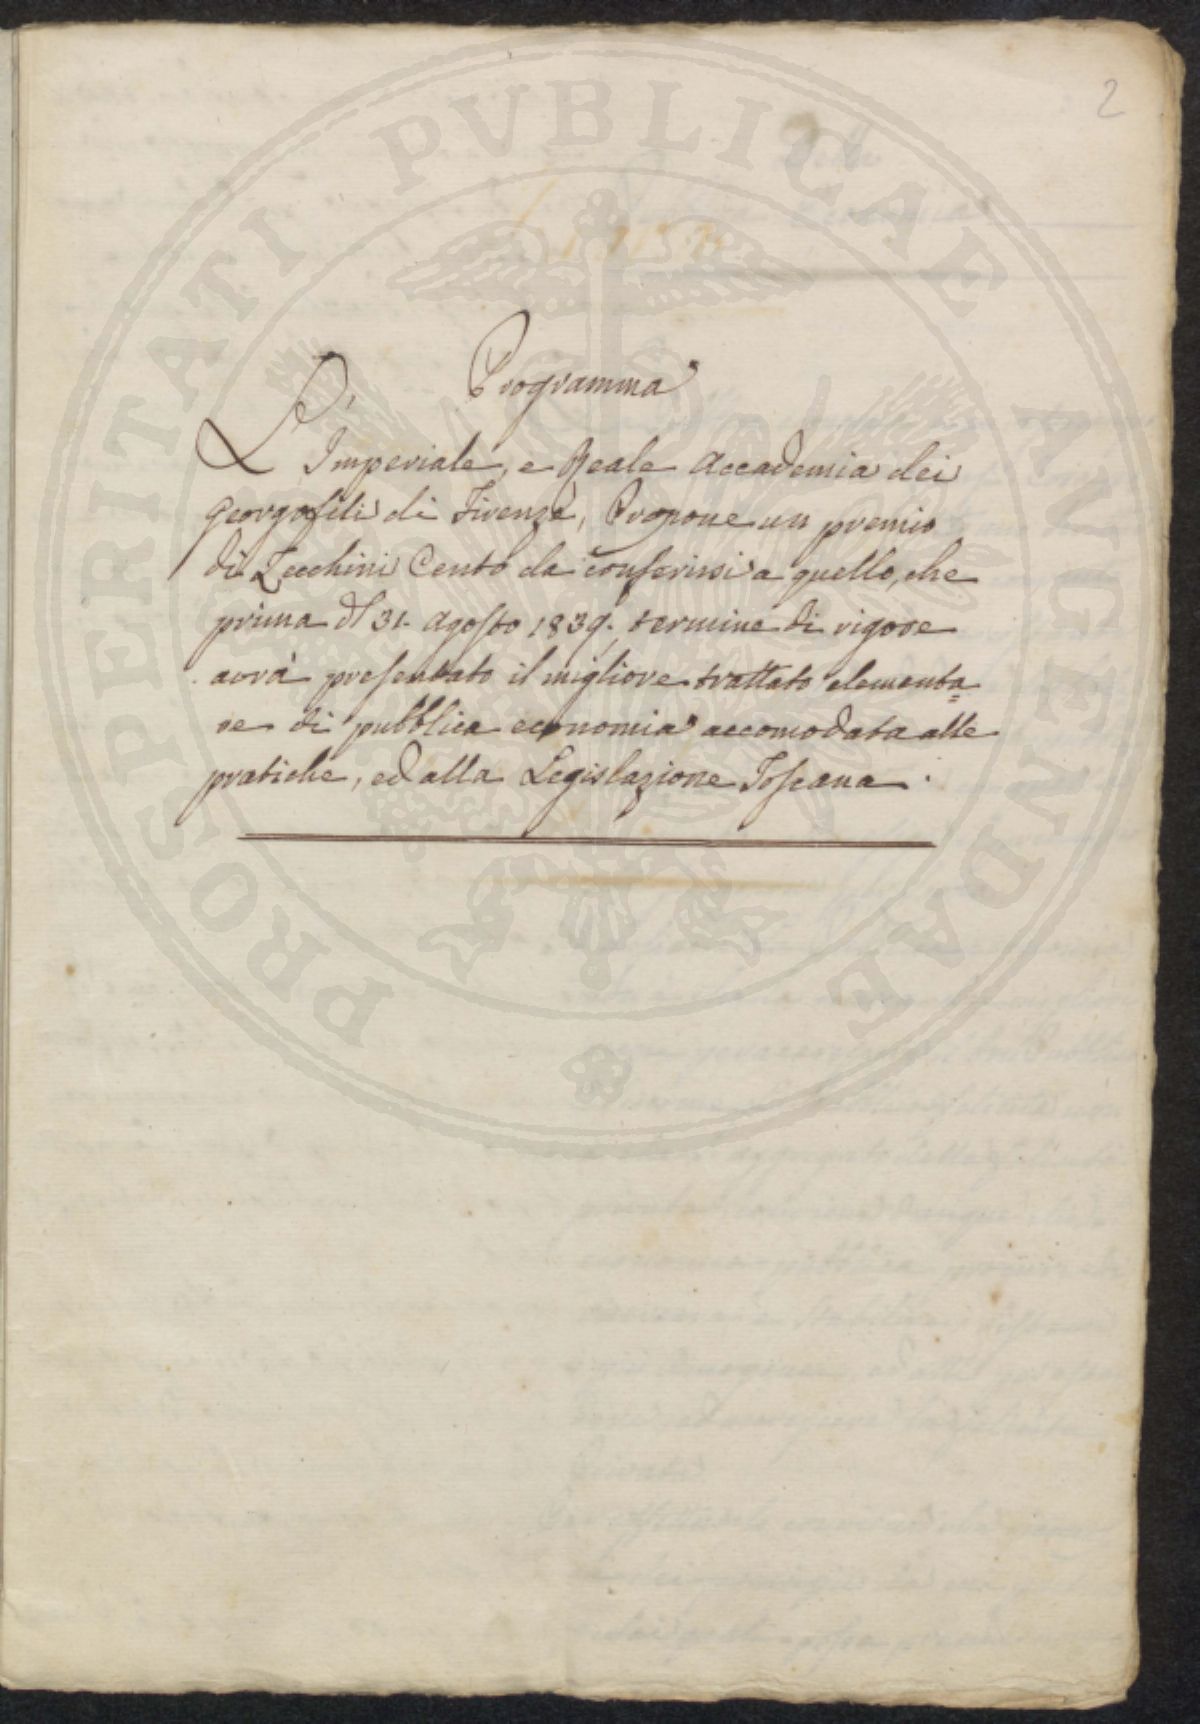 2
PROSPERITATI PVBLICAE AVGENDAE
Programma
L'Imperiale, e Reale Accademia dei
Georgofili di Firenze, Propone un premio
di Zecchini Cento da conferirsi a quello, che
prima del 31. Agosto 1839. termine di rigore
avrà presentato il migliore trattato elementa=
re di pubblica economia accomodata alle
pratiche, ed alla Legislazione Toscana.